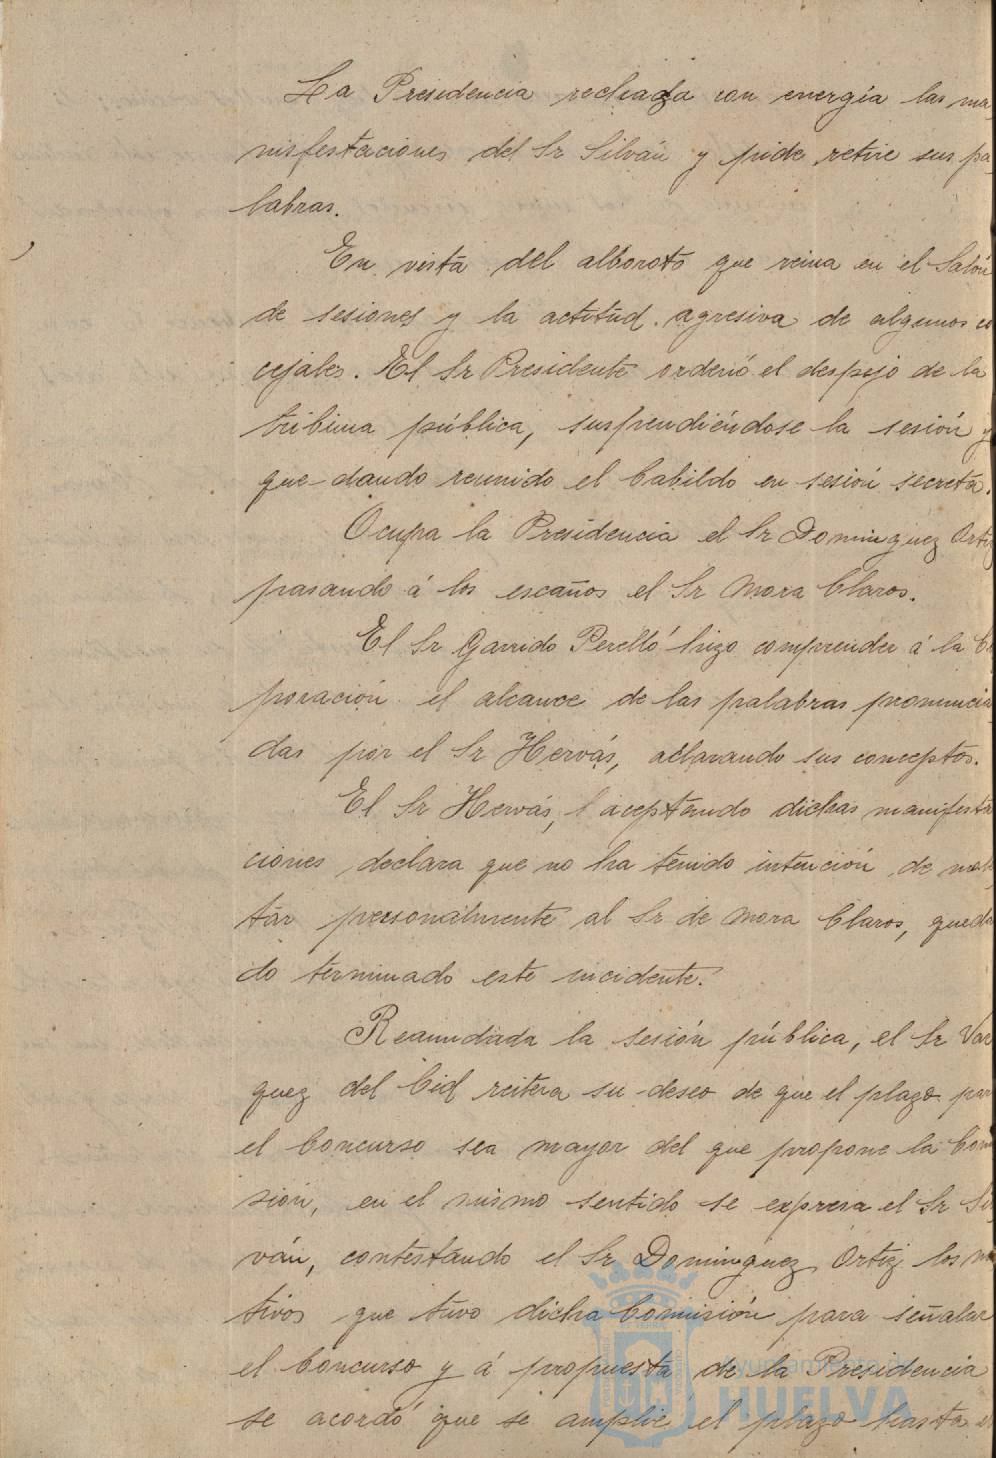 La Presidencia rechaza con energía las ma
nisfestaciones del Sr Silván y pide retire sus pa
labras.
En vista del alboroto que reina en el Salón
de sesiones y la actitud agresiva de algunos co
cejales. El Sr Presidente ordenó el despejo de la
tribuna pública, suspendiéndose la sesión y
que-dando reunido el Cabildo en sesión secreta.
Ocupa la Presidencia el Sr Dominguez Ortiz
pasando á los escaños el Sr Mora Claros.
El Sr Garrido Perelló hizo comprender á la Co
poración el alcance de las palabras pronuncia
das por el Sr Hervás, aclarando sus conceptos.
El Sr Hervás, aceptando dichas manifesta
ciones declara que no ha tenido intención de moles
tar personalmente al Sr de Mora Claros, quedan
do terminado este incidente.
Reanudada la sesión pública, el Sr Vaz
quez del Cid reitera su deseo de que el plazo para
el Concurso sea mayor del que propone la Comi
sión, en el mismo sentido se expresa el Sr Sil
ván, contestando el Sr Dominguez Ortiz los mo
tivos que tuvo dicha Comisión para señalar
el Concurso y á propuesta de la Presidencia
se acordó que se amplie el plazo hasta el
Ayuntamiento de
HUELVA